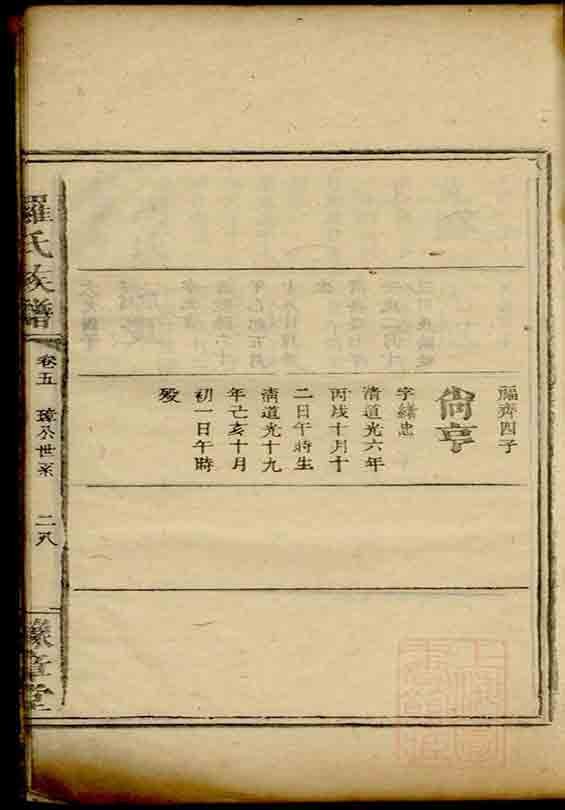 福齊四子
尚亨
字緒忠
清道光六年
丙戌十月十
二日午時生
清道光十九
年己亥十月
初一日午時
歿
羅氏族譜
卷五
璋公世系
二八
豫章堂